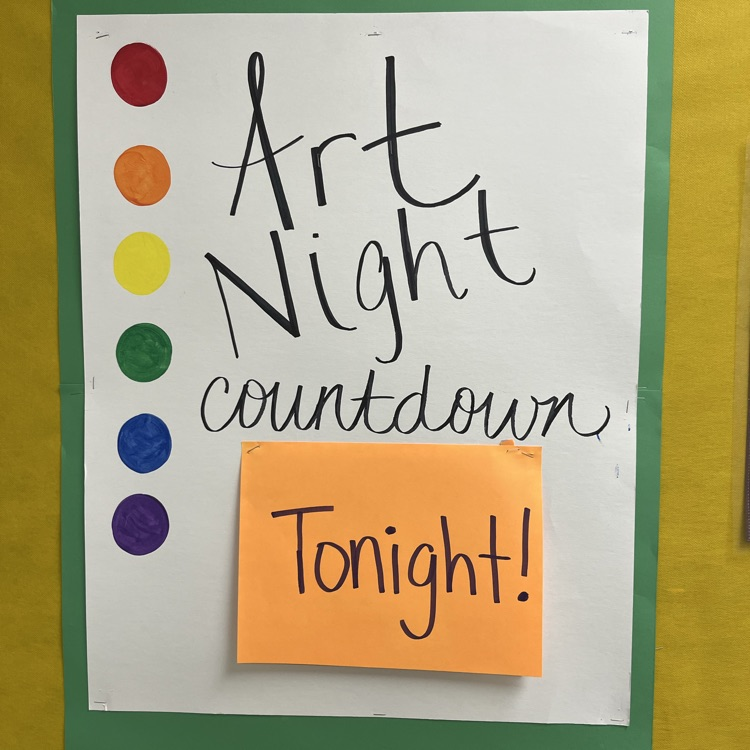 Art
Night
countdown
Tonight!